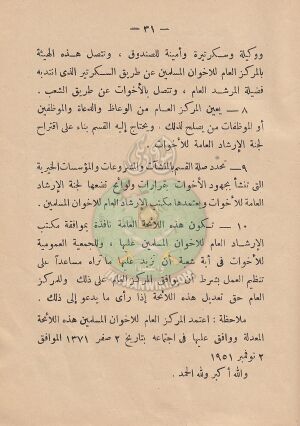 — ٣١ —
ووكيلة وسكرتيرة وأمينة للصندوق ، وتتصل هذه الهيئة
بالمركز العام للاخوان المسلمين عن طريق السكرتير الذى انتدبه
فضيلة المرشد العام ، وتتصل بالأخوات عن طريق الشعب .
٨ — يعين المركز العام من الوعاظ والدعاة والموظفين
أو الموظفات من يصلح لذلك . ويحتاج إليه القسم بناء على اقتراح
لجنة الإرشاد العامة للأخوات .
٩ — تحدد صلة القسم بالمنشآت والمشروعات والمؤسسات الخيرية
التى تنشأ بجهود الأخوات بقرارات ولوائح تضعها لجنة الإرشاد
العامة للأخوات ويعتمدها مكتب الإرشاد العام للاخوان المسلمين .
١٠ — تكون هذه اللائحة العامة نافذة بموافقة مكتب
الإرشاد العام للاخوان المسلمين عليها ، وللجمعية العمومية
للأخوات فى أية شعبة أن تزيد عليها ما تراه مساعداً على
تنظيم العمل بشرط أن يوافق المركز العام على ذلك وللمركز
العام حق تعديل هذه اللائحة إذا رأى ما يدعو إلى ذلك .
ملاحظة : اعتمد المركز العام للاخوان المسلمين هذه اللائحة
المعدلة ووافق عليها فى اجتماعه بتاريخ ٢ صفر ١٣٧١ الموافق
٢ نوفمبر ١٩٥١
والله أكبر ولله الحمد .